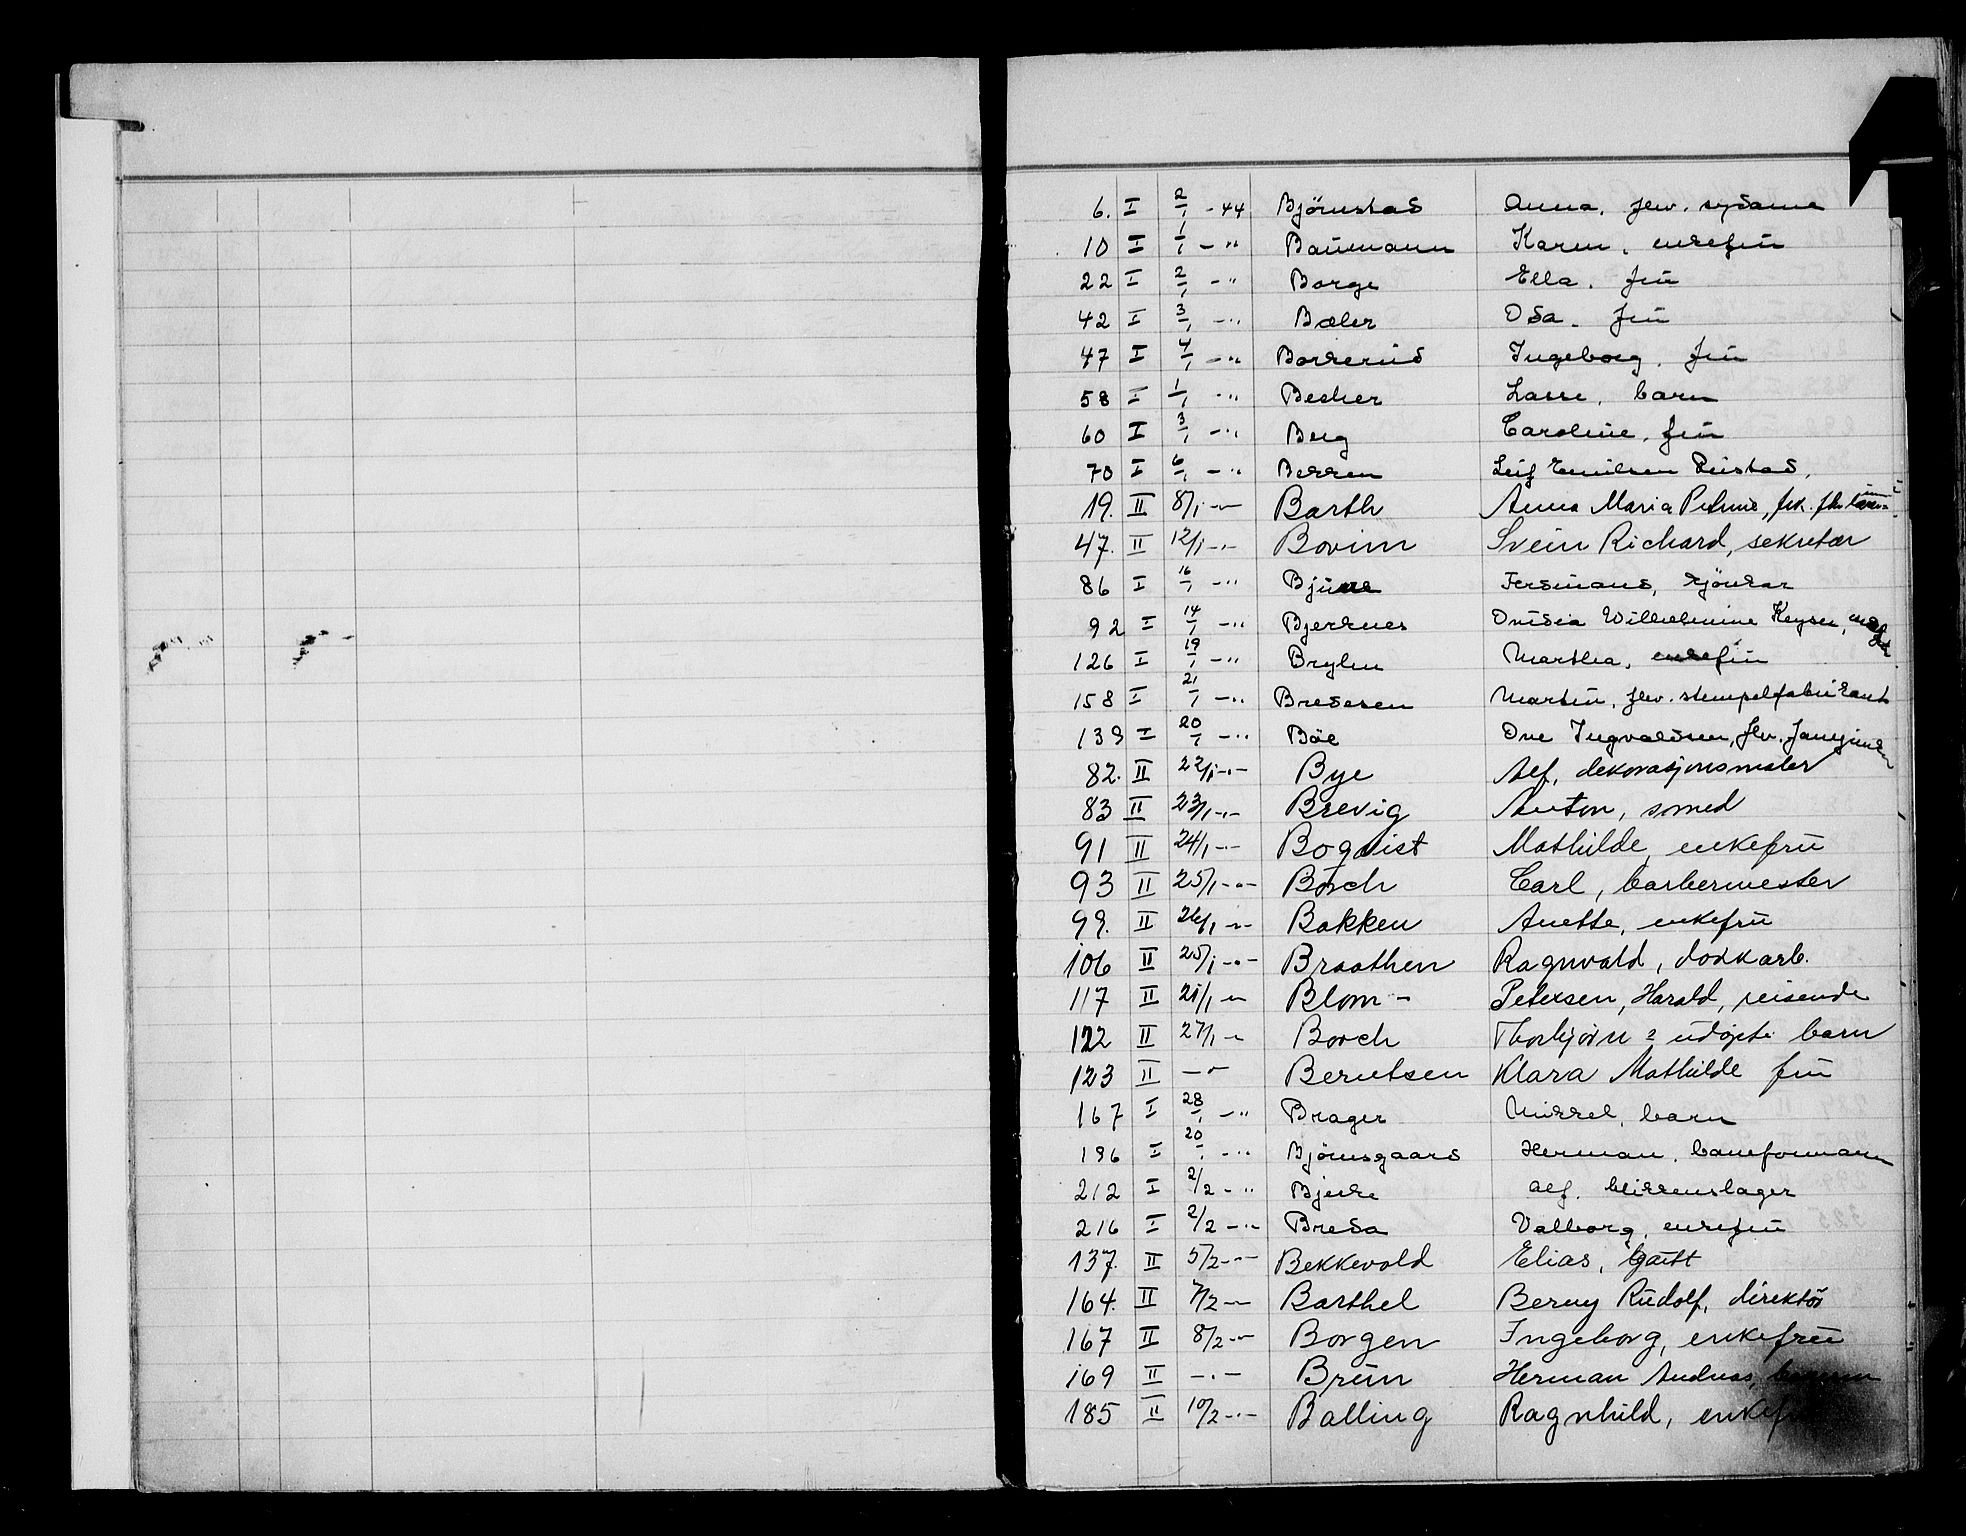 6. I 2/1 - 44 Björnstad Anna, fhv. sydame
10 I 1/1 - " Baumann Karen, enkefru
22 I 2/1 - " Borge Ella, fru
42 I 3/1 - " Bæler Oda, fru
47 I 4/1 - " Borkerud Ingeborg, fru
58 I 1/1 - " Becher Lasse, barn
60 I 3/1 - " Berg Caroline, fru
70 I 6/1 - " Berren Leif Emilsen
19. II 8/1 - " Barth Anna Maria Petrine, frk. fhv.
47. II 12/1 - " Bovim Svein Richard, sekretær
86 I 16/1 - " Ferdinand, sjökar
92 I 14/1 - " Bjerknes Ovidia Wilhelmine Keyser,
126 I 19/1 - " Brylen Martha, enkefru
158 I 21/1 - " Bredesen Martin, fhv. stempelfabrikant
139 I 20/1 - " Böe Ove Ingvaldsen, fhv.
82. II 22/1 - " - Bye Alf, dekorasjonsmaler
83 II 23/1 - " - Brevig Anton, smed
91 II 24/1 - " - Boqvist Mathilde, enkefru
93 II 25/1 - " - Borch Carl, barbermester
99. II 26/1 - " - Bakken Anette, enkefru
106 II 25/1 - " - Braathen Ragnvald, dokkarb.
117 II 21/1 - " Blom - Petersen, Harald, reisende
122 II 27/1 - " Borch Thorbjörn 2 udöpte barn
123 II - " - Berntsen Klara Mathilde fru
167 I 28/1 - " Brager Mikkel, barn
196 I 20/1 - " Björnsgaard Herman, baneformann
212 I 2/2 - " Bjerke Alf, blikkenslager
216 I 2/2 - " - Breda Valborg, enkefru
137. II 5/2 - " - Bekkevold Elias,
164. II 7/2 - " - Barthel Berny Rudolf, direktör
167 II 8/2 - " - Borgen Ingeborg, enkefru
169 II - " - Brun Herman Andreas,
185 II 10/2 - " - Balling Ragnhild, enkefru